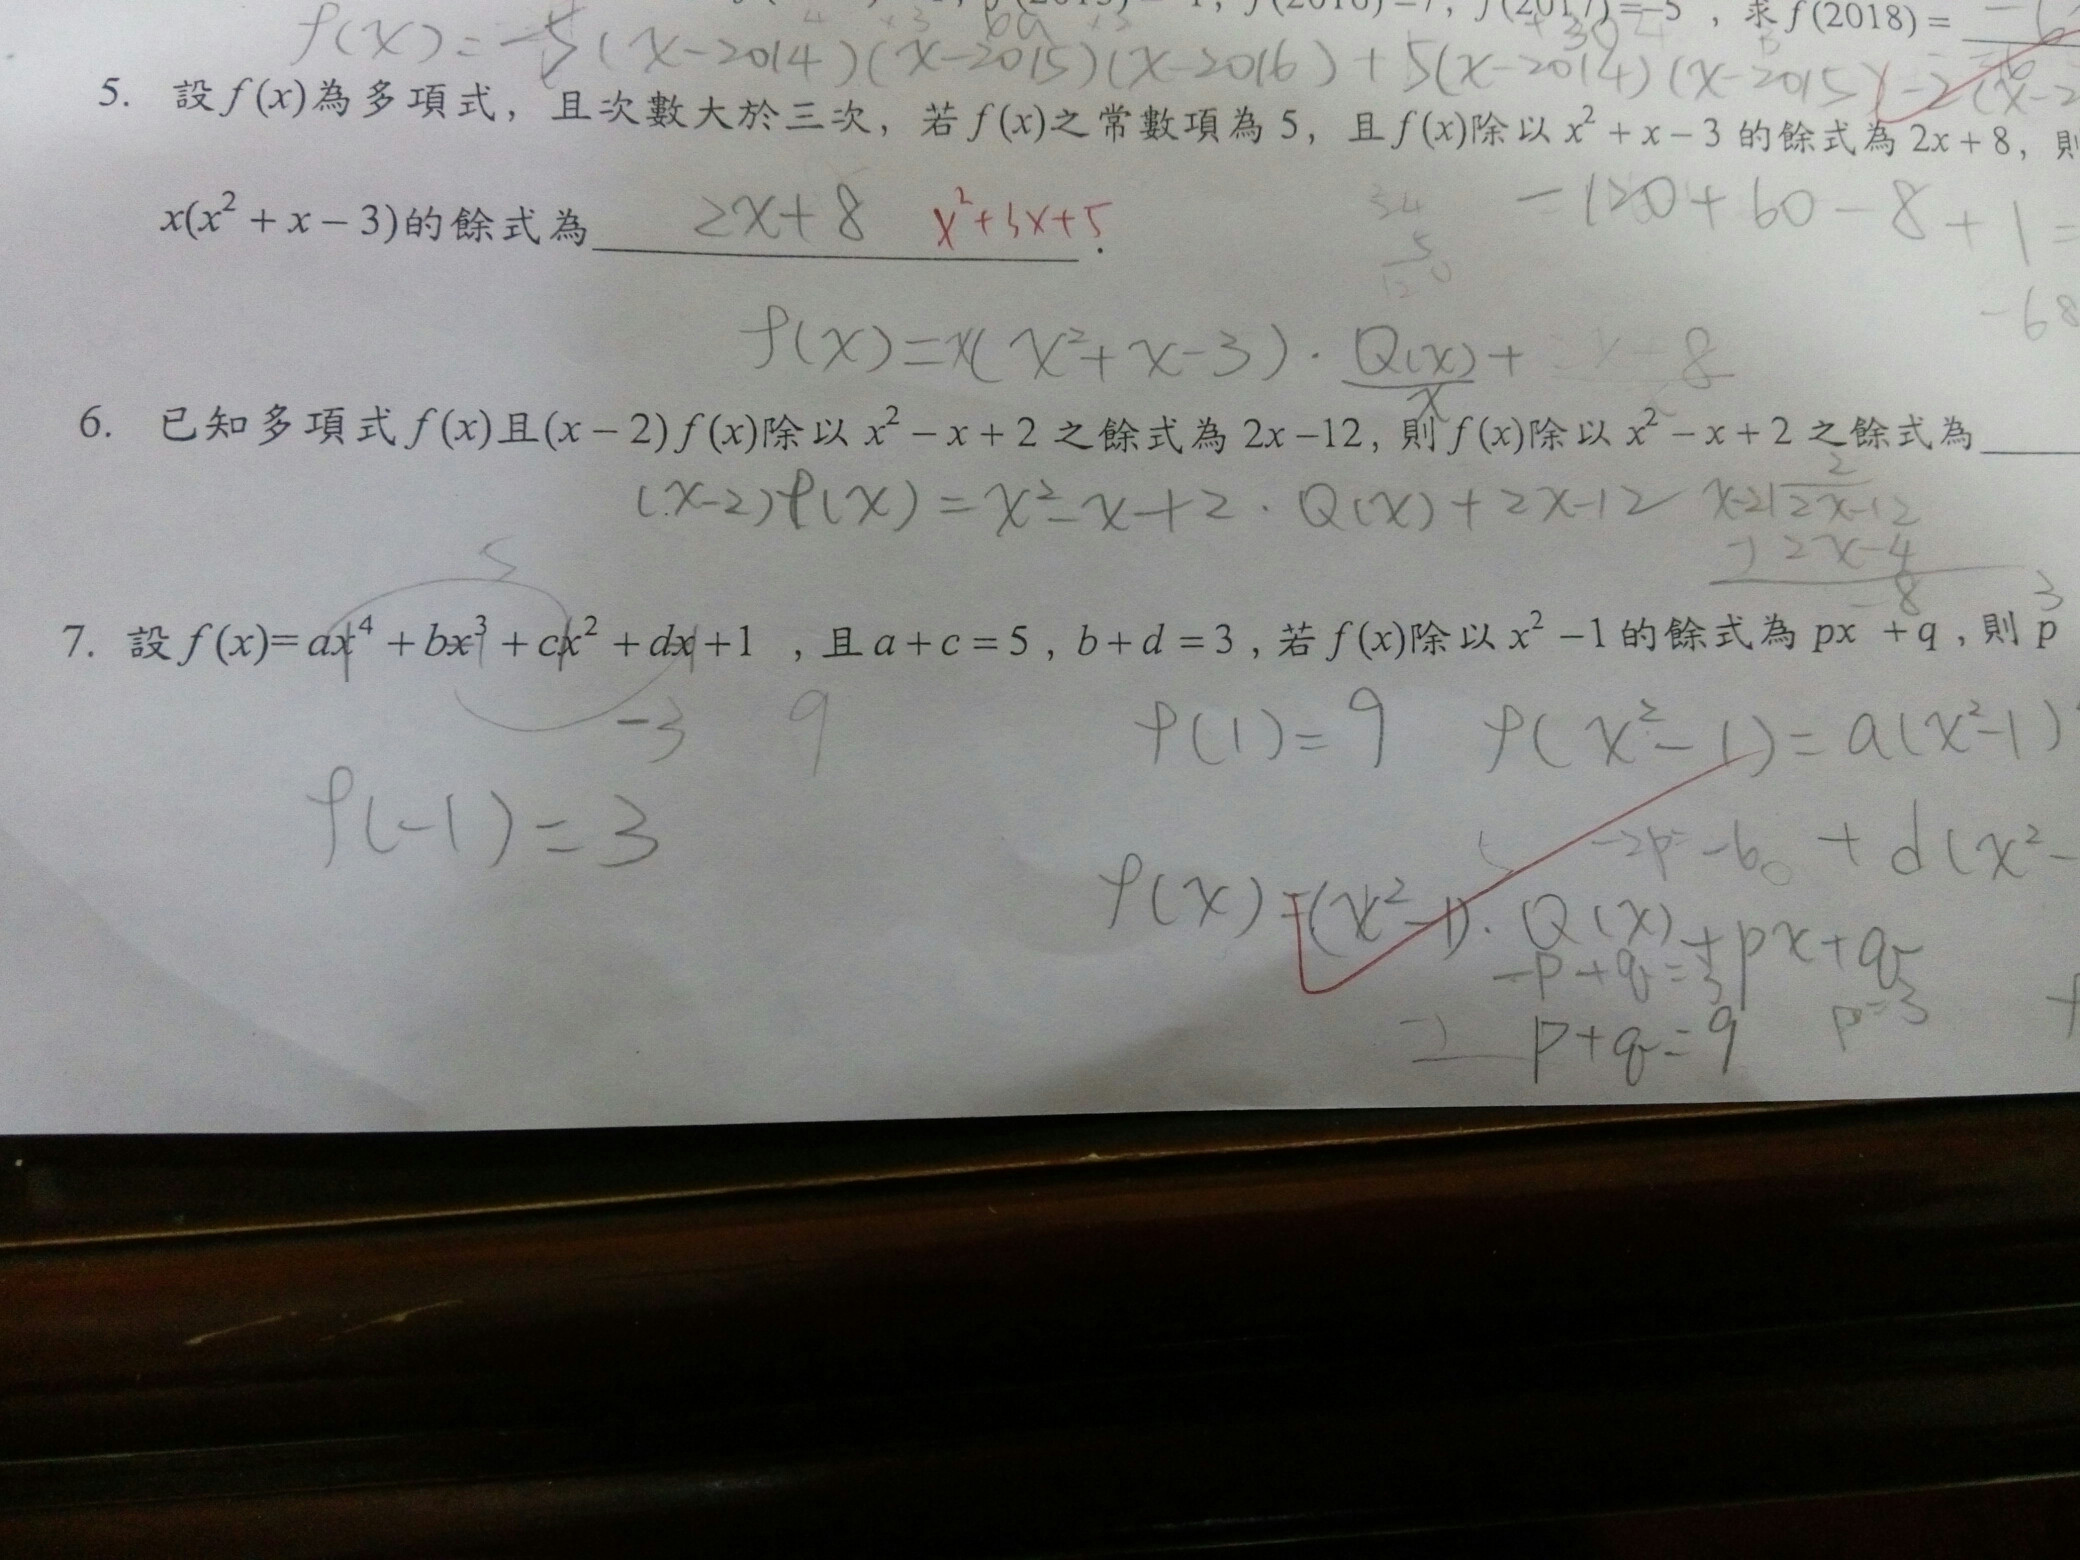 f(2016)=7, f(2017)=-5 , 求 f(2018) =
f(x)=-5(x-2014)(x-2015)(x-2016)+5(x-2014)(x-2015)-2(x-2
5. 設 f(x)為多項式，且次數大於三次，若 f(x)之常數項為 5，且 f(x)除以 x²+x-3 的餘式為 2x+8，則
x(x²+x-3)的餘式為 2x+8 x²+3x+5.
-120+60-8+1=
-68
f(x)=x(x²+x-3)·Q(x)/x+
6. 已知多項式 f(x)且(x-2)f(x)除以 x²-x+2 之餘式為 2x-12，則 f(x)除以 x²-x+2 之餘式為
(x-2)f(x)=x²-x+2·Q(x)+2x-12
2
x-2)2x-12
-) 2x-4
-8
5
3
7. 設 f(x)=ax⁴+bx³+cx²+dx+1 ，且 a+c=5，b+d=3，若 f(x)除以 x²-1 的餘式為 px+q，則 p
-3 9 f(1)=9 f(x²-1)=a(x²-1)
f(-1)=3
+d(x²-
f(x)=(x²-1)·Q(x)+px+q
-p+q=3
p=3
-) p+q=9